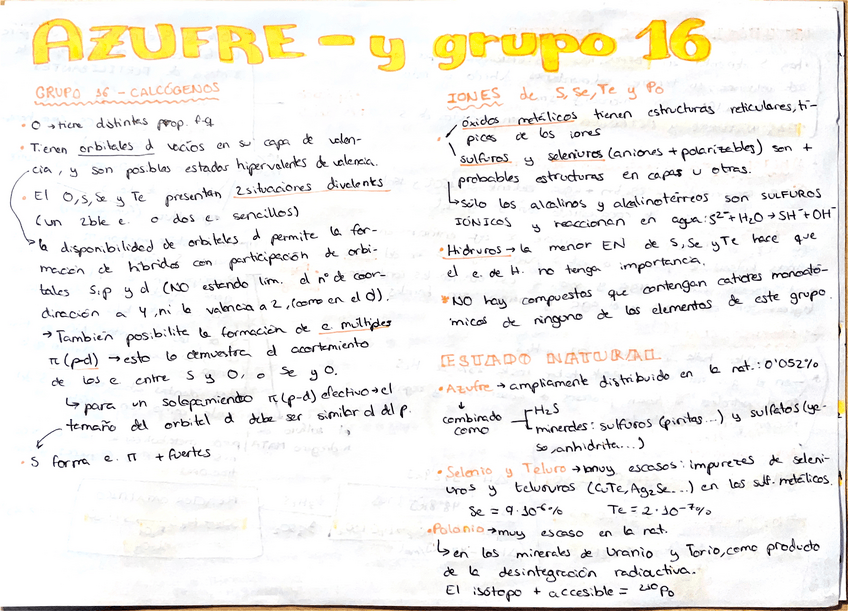 AZUFRE - y grupo 16
GRUPO 16 - CALCÓGENOS
• O → tiene distintas prop. f-q
• Tienen orbitales d vacíos en su capa de valen-
cia, y son posibles estados hipervalentes de valencia.
• El O, S, Se y Te presentan 2 situaciones divalentes
(un 2ble e. o dos e. sencillos)
la disponibilidad de orbitales d permite la for-
mación de híbridos con participación de orbi-
tales s, p y d (NO estando lim. el nº de coor-
dinación a 4, ni la valencia a 2, (como en el O).
→ También posibilita la formación de e múltiples
π (p-d) → esto lo demuestra el acortamiento
de los e entre S y O, o Se y O.
↳ para un solapamiento π (p-d) efectivo → el
tamaño del orbital d debe ser similar al del p.
• S forma e. π + fuertes
IONES de S, Se, Te y Po
• óxidos metálicos tienen estructuras reticulares, tí-
picas de los iones
• sulfuros y seleniuros (aniones + polarizables) son +
probables estructuras en capas u otras.
↳ sólo los alcalinos y alcalinotérreos son SULFUROS
IÓNICOS y reaccionan en agua: S²⁻ + H₂O → SH⁻ + OH⁻
• Hidruros → la menor EN de S, Se y Te hace que
el e. de H. no tenga importancia.
* NO hay compuestos que contengan cationes monoató-
micos de ninguno de los elementos de este grupo.
ESTADO NATURAL
• Azufre → ampliamente distribuido en la nat.: 0'052%
↓
combinado como
H₂S
minerales: sulfuros (piritas...) y sulfatos (ye-
so, anhidrita...)
• Selenio y Teluro → muy escasos: impurezas de seleni-
uros y telururos (CuTe, Ag₂Se...) en los sulf. metálicos.
Se = 9·10⁻⁶% Te = 2·10⁻⁷%
• Polonio → muy escaso en la nat.
↳ en los minerales de Uranio y Torio, como producto
de la desintegración radiactiva.
El isótopo + accesible = ²¹⁰Po